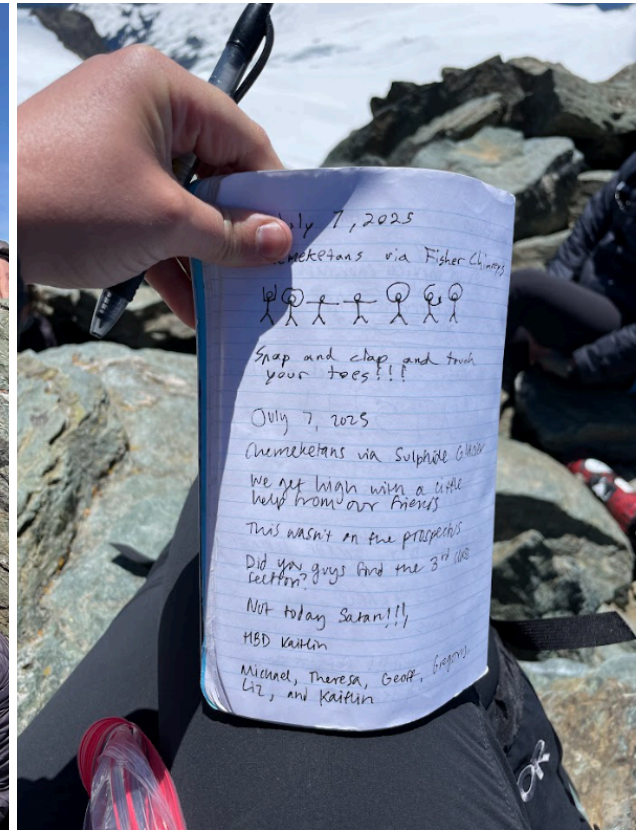 July 7, 2025
Chemeketans via Fisher Chimneys
Snap and clap and touch
your toes!!!
July 7, 2025
Chemeketans via Sulphide Glacier
We get high with a little
help from our friends
This wasn't on the prospectus
Did you guys find the 3rd class
section?
Not today Satan!!!
HBD Kaitlin
Michael, Theresa, Geoff, Gregory,
Liz, and Kaitlin